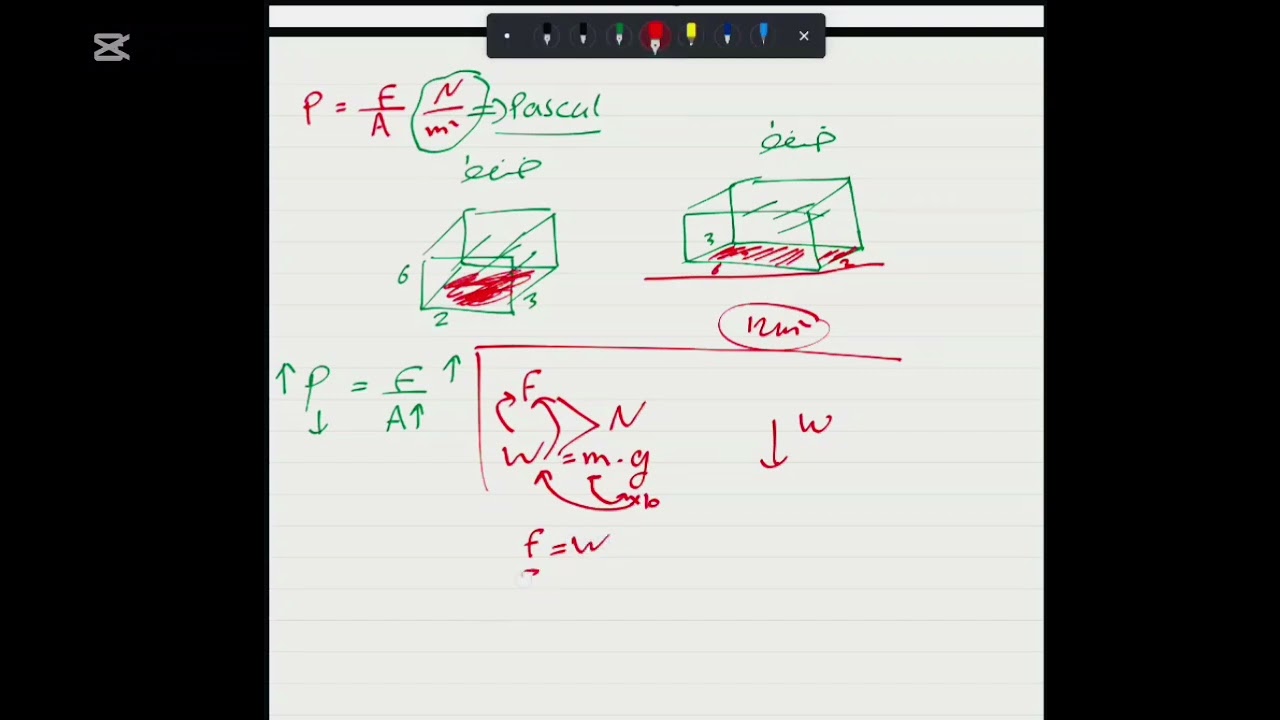 P = F/A N/m² => Pascal
ضغط
ضغط
6
2
3
3
6
2
12m²
↑ P ↓ = F ↑ / A ↑
F
N
W = m . g
×10
↓ W
f = W